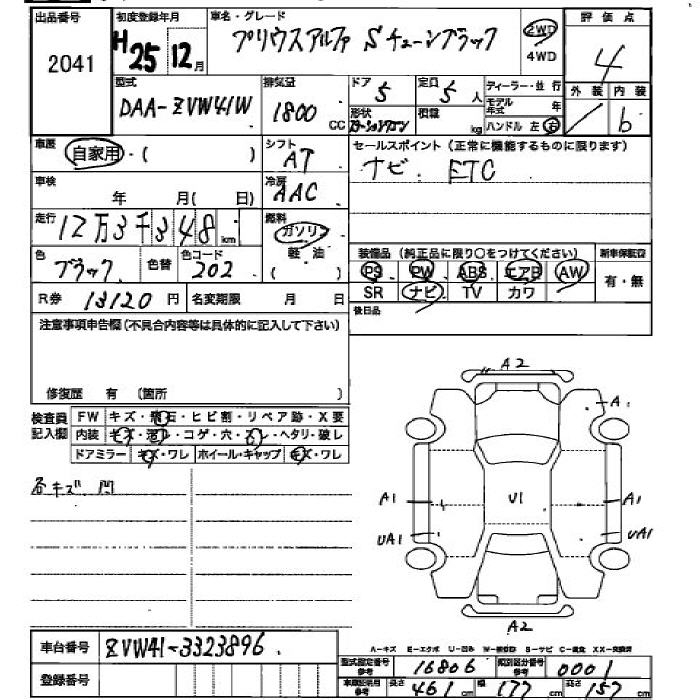 出品番号 初度登録年月 車名・グレード 評価点
2041 H25 12月 プリウスアルファ Sチューンブラック 2WD 4WD 4
型式 排気量 ドア 定口 ディーラー・並行 外装 内装
DAA-ZVW41W 1800CC 5 5人 モデル年式 年 b
形状 ステーションワゴン 積載 kg ハンドル 左 右
車歴 シフト セールスポイント(正常に機能するものに限ります)
自家用・( ) AT ナビ ETC
車検 冷房
年 月( 日) AAC
走行 燃料
12万3千348km ガソリン
色 色替 色コード 軽油 装備品(純正品に限り○をつけてください) 新車保証書
ブラック 202 PS PW ABS エアB AW 有・無
R券 13120円 名変期限 月 日 SR ナビ TV カワ
後日品
注意事項申告欄(不具合内容等は具体的に記入して下さい)
修復歴 有 (箇所 )
検査員記入欄 FW キズ・飛石・ヒビ割・リペア跡・X要
内装 キズ・・コゲ・穴・・ヘタリ・破レ
ドアミラー キズ・ワレ ホイール・キャップ キズ・ワレ
各キズ 凹
A2
A
A1 U1 A1
UA1 UA1
A2
車台番号 ZVW41-3323896
A-キズ E-エクボ U-凹み S-サビ C-腐食 XX-交換済
登録番号 型式指定番号参考 16806 類別区分番号 0001
長さ 461cm 幅 177cm 高さ 157cm